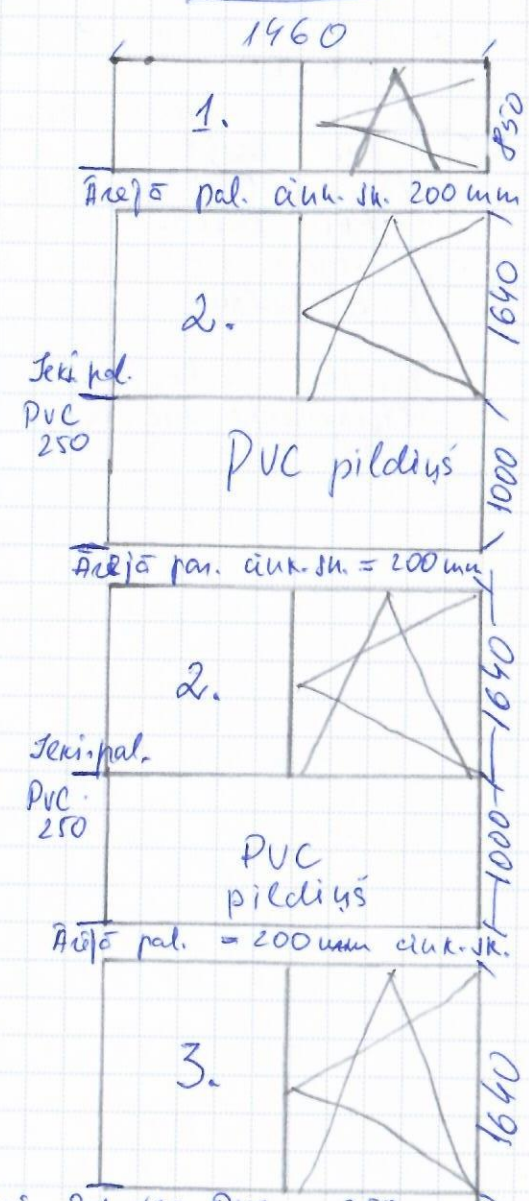 1460
1. 850
Ārējā pal. cink. sk. 200 mm
2. 1640
Iekš. pal.
PVC
250
PVC pildiņš 1000
Ārējā pal. cink. sk. = 200 mm
2. 1640
Iekš. pal.
PVC
250
PVC
pildiņš 1000
Ārējā pal. = 200 mm cink. sk.
3. 1640